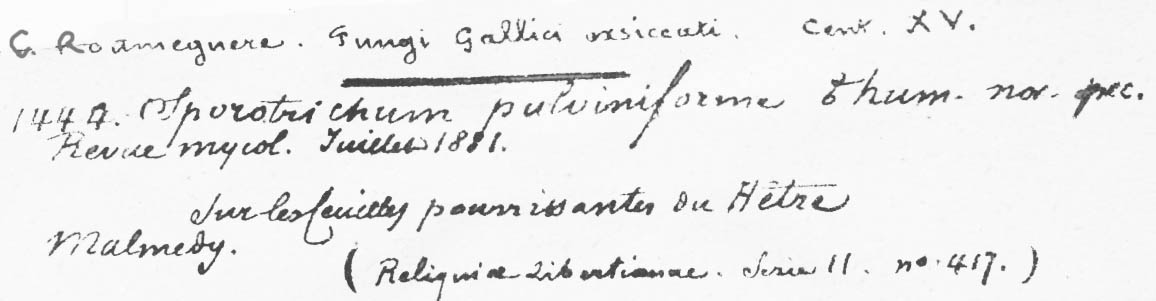 C. Roumeguere. Fungi Gallici exsiccati. Cent. XV.
1444. Sporotrichum pulviniforme Thum. nov. spec.
Revue mycol. Juillet 1881.
Sur les feuilles pourrissantes du Hêtre
Malmedy.
(Reliquiae Libertianae. Serie II. no. 417.)